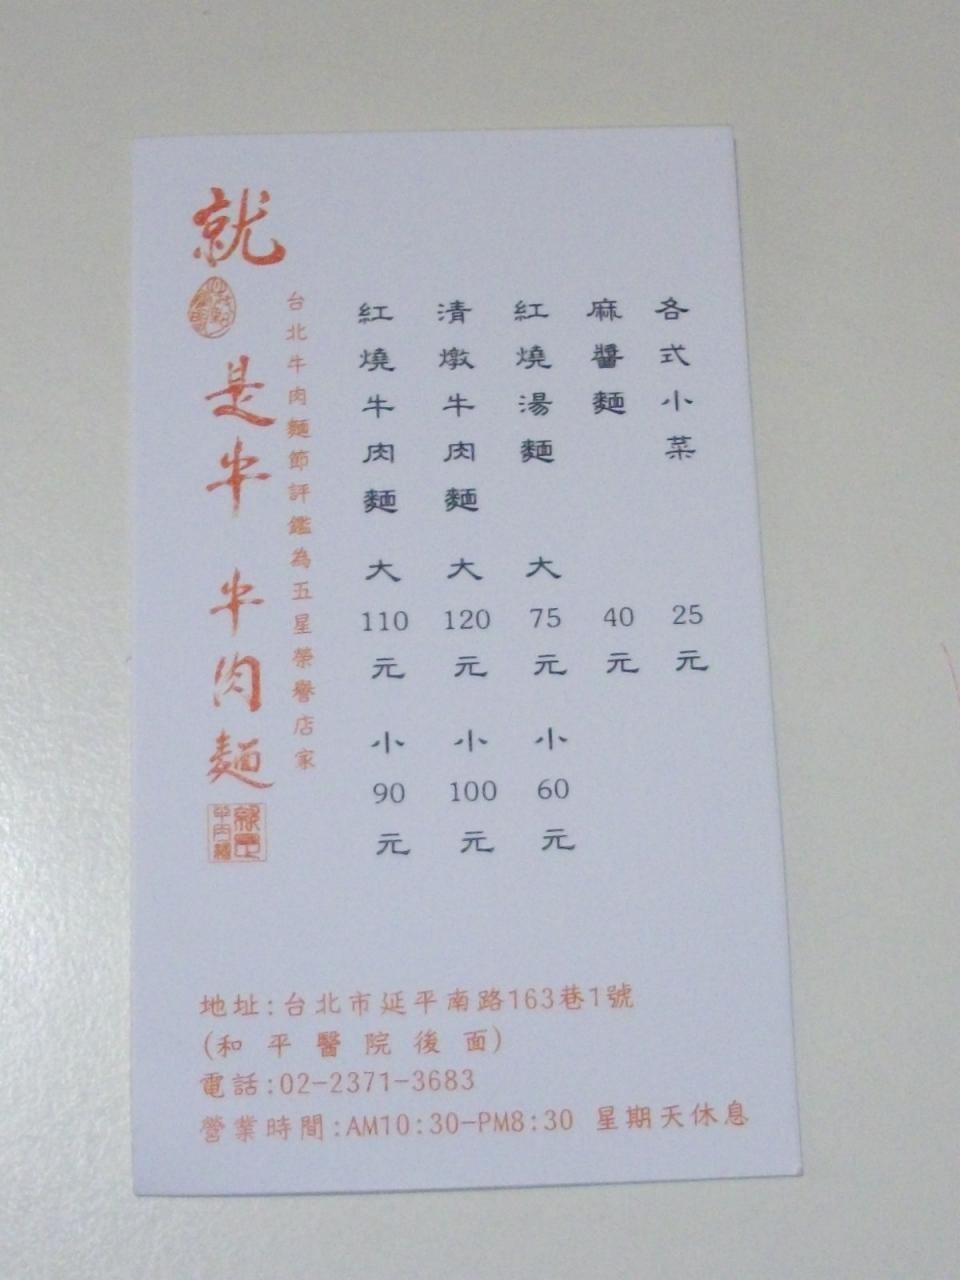 就是牛 牛肉麵
台北牛肉麵節評鑑為五星榮譽店家
紅燒牛肉麵 大110元 小90元
清燉牛肉麵 大120元 小100元
紅燒湯麵 大75元 小60元
麻醬麵 40元
各式小菜 25元
地址:台北市延平南路163巷1號
(和平醫院後面)
電話:02-2371-3683
營業時間:AM10:30-PM8:30 星期天休息